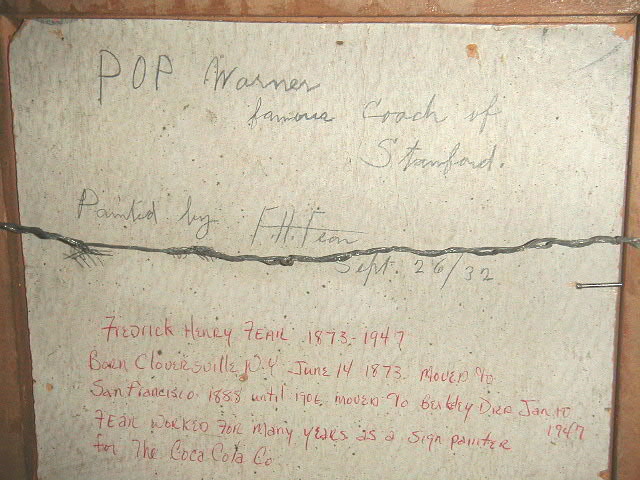 POP Warner
famous Coach of
Stanford.
Painted by F.H. Fear
Sept. 26/32
Fredrick Henry Fear 1873-1947
Born Cloversville N.Y June 14 1873. moved to
San Francisco. 1888 until 1906. moved to Berkley Died Jan 10
1947
Fear worked for many years as a sign painter
for The Coca Cola Co.